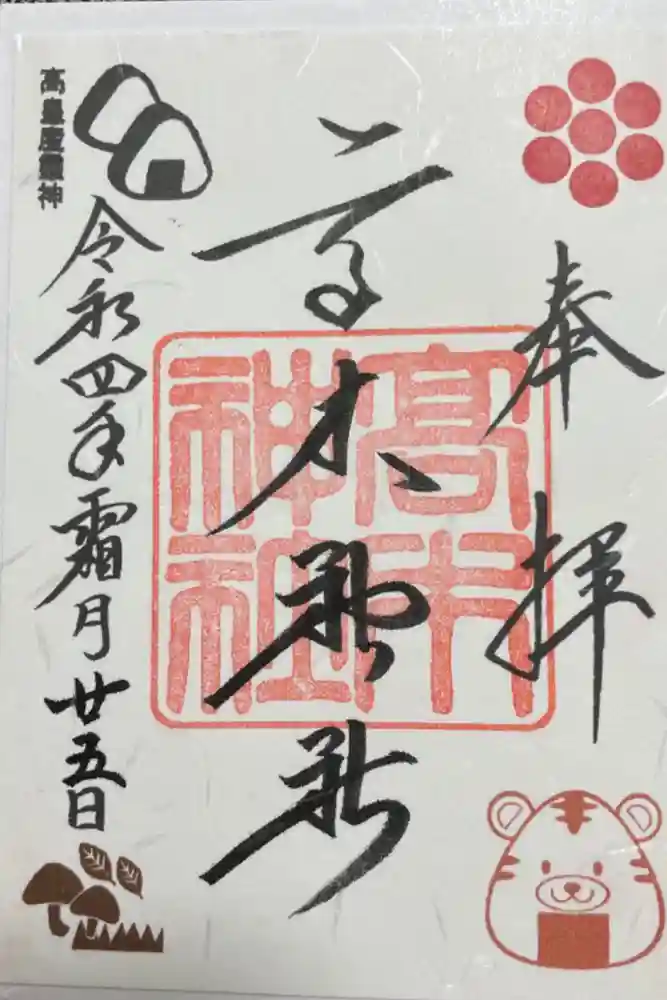 奉拝
高木神社
高木神社
高皇産靈神
令和四年霜月廿五日